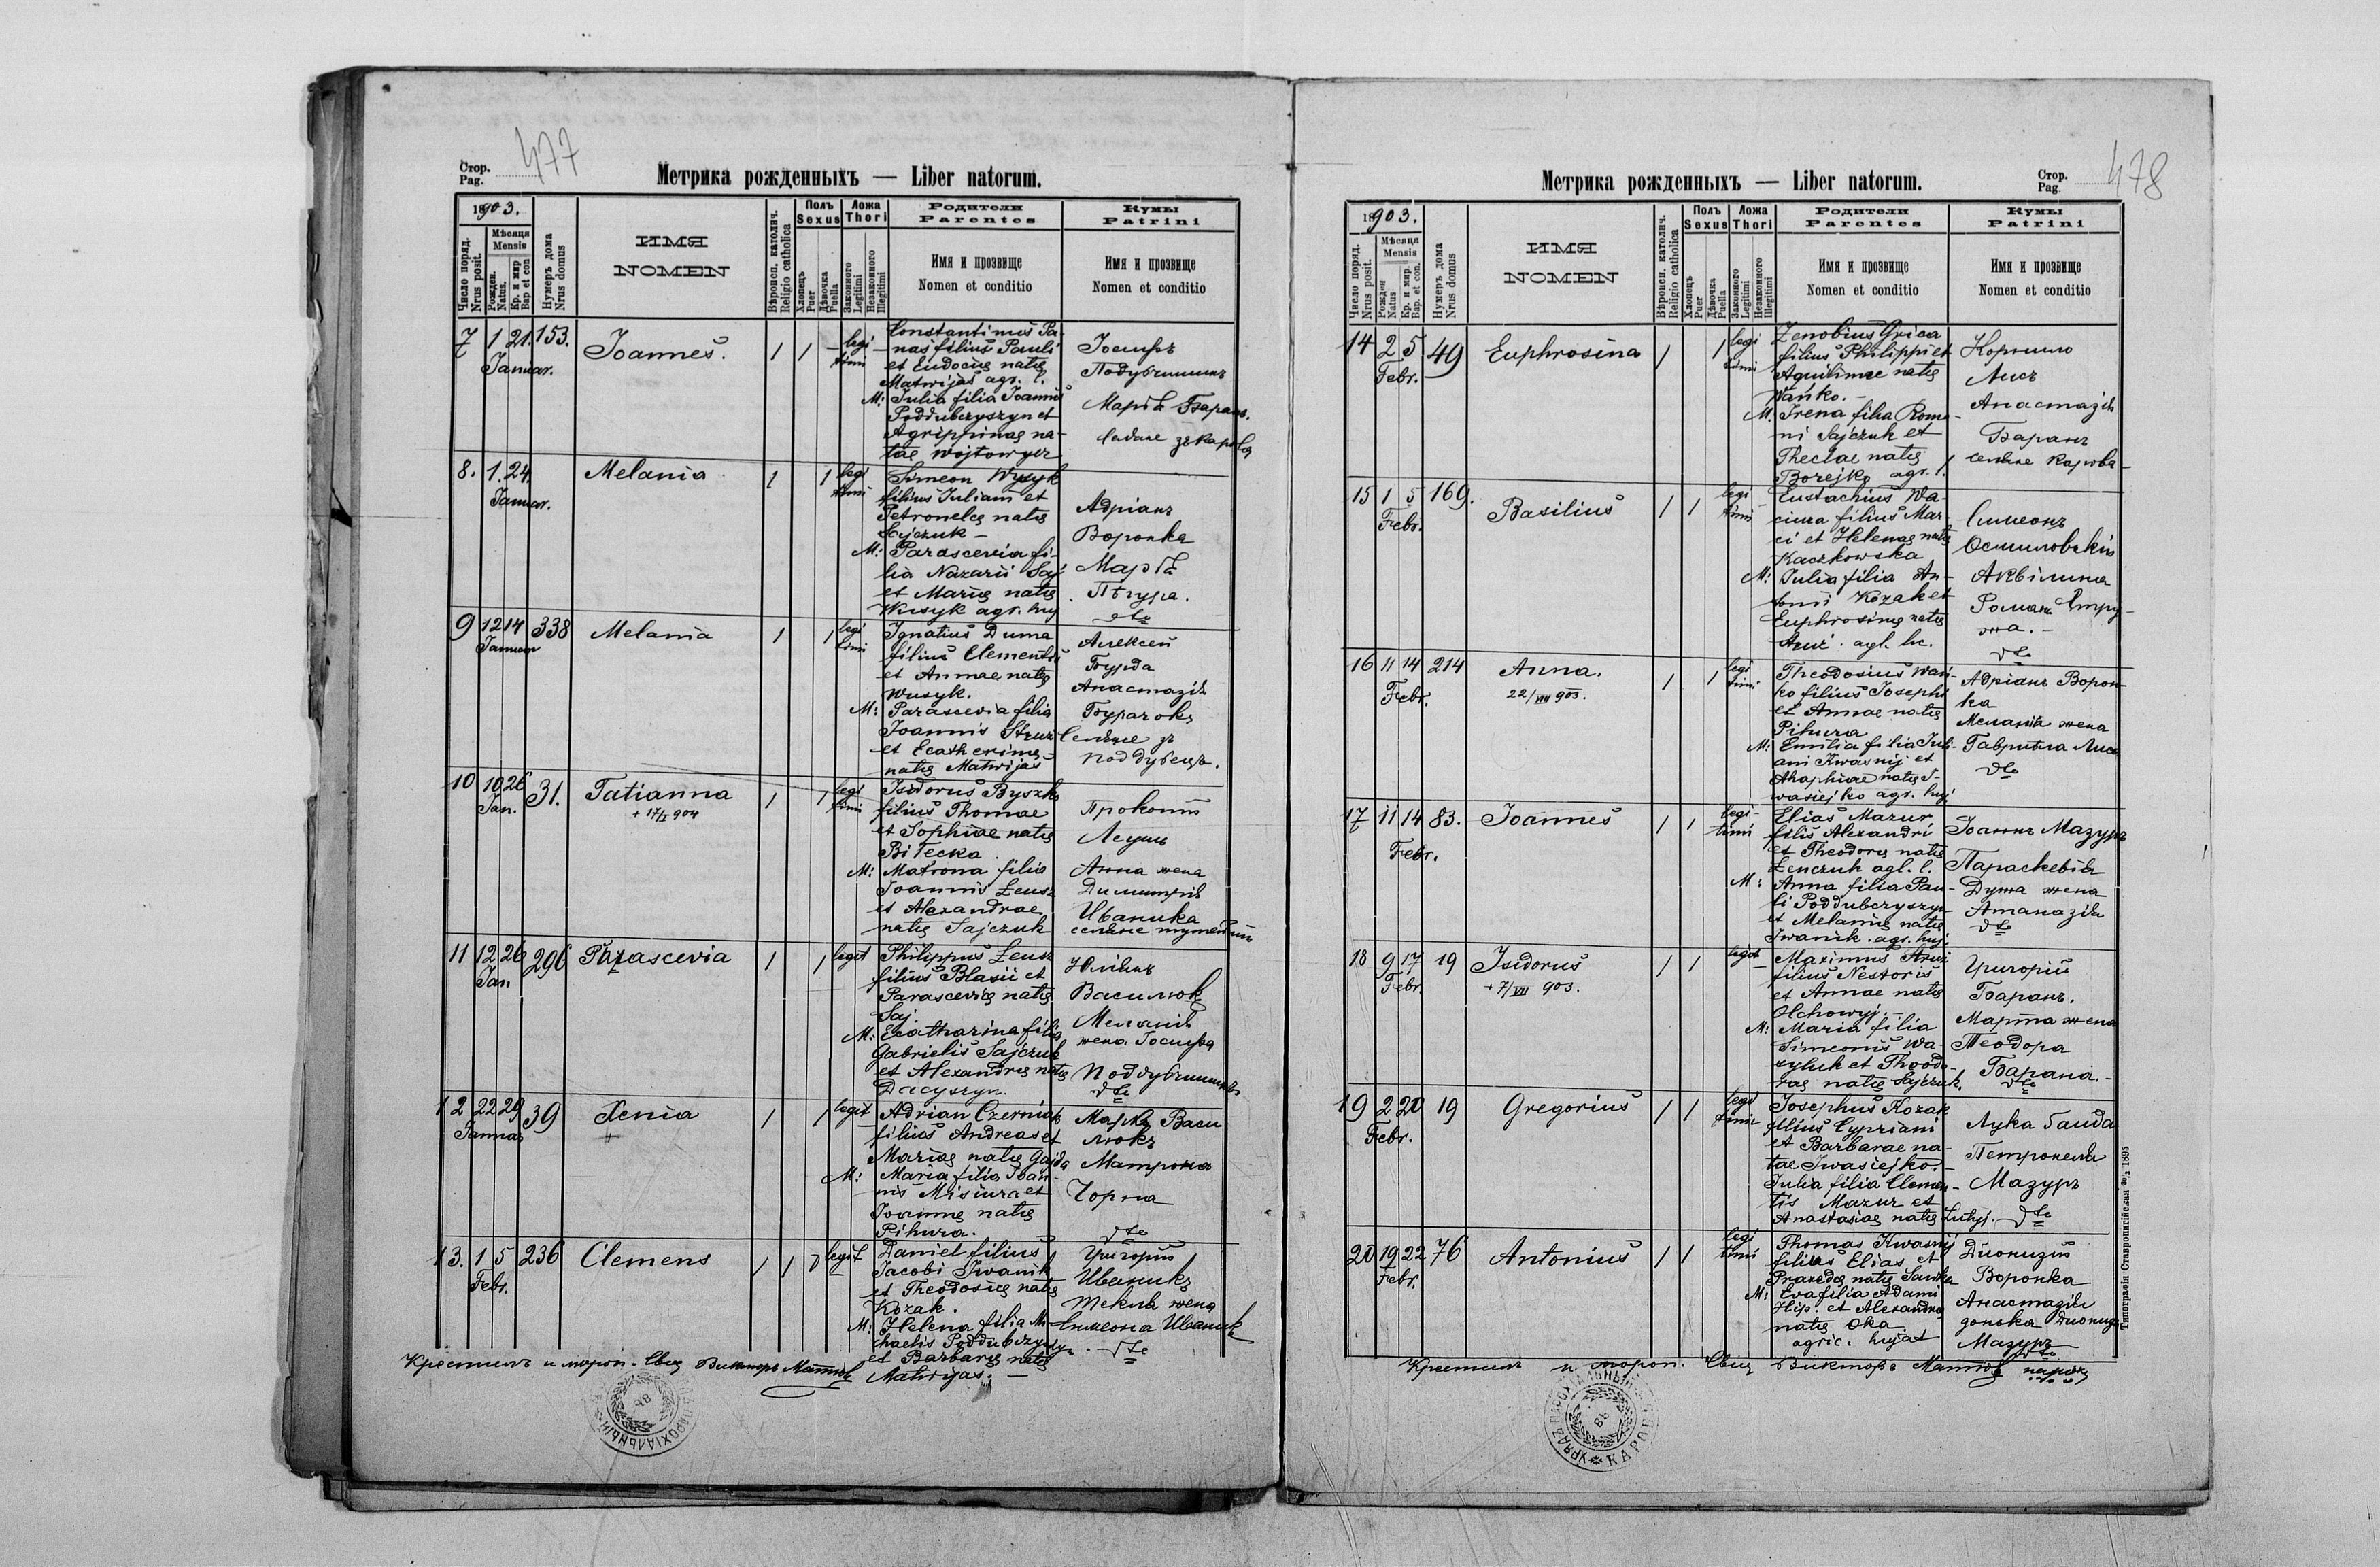 477
Стор.
Pag.
Метрика рожденныхъ — Liber natorum.
1903.
Число поряд.
Nrus posit.
Мѣсяця
Mensis
Рожден.
Natus.
Кр. и мир
Bap et con
Нумеръ дома
Nrus domus
ИМЯ
NOMEN
Вѣроисп. католич.
Religio catholica
Полъ
Sexus
Хлопецъ
Puer
Дѣвочка
Puella
Ложа
Thori
Законного
Legitimi
Незаконного
Illegitimi
Родители
Parentes
Имя и прозвище
Nomen et conditio
Кумы
Patrini
Имя и прозвище
Nomen et conditio
7 1 21. 153. Joannes. 1 1 – legi
timi
Januar.
Constantinus Pa-
nas filius Pauli
et Eudociæ natæ
Matwijas agr. l.
M: Julia filia Joannis
Poddubczyszyn et
Agrippinae na-
tae Wojtowycz
Іосифъ
Поддубчишинъ
Марія Баранъ.
8. 1. 24. Melania 1 1 legi
timi
Januar.
Simeon Wusyk
filius Juliani et
Petronelæ natæ
Sajczuk –
M: Parascevia fi-
lia Nazarii Saj
et Mariæ natæ
Wusyk agr. huj
Адріанъ
Воронка
Марія
Пѣгура.
dto
9 12 14 338 Melania 1 1 legi
timi
Januar
Ignatius Duma
filius Clementis
et Annae natæ
Wusyk.
M: Parascevia filia
Joannis Struz
et Ecatherinæ
natæ Matwijas
Алексей
Бурда
Анастазія
Бурачокъ
Селяне зъ
Поддубець.
10 10 26 31. Tatianna 1 1 legi
timi
Jan.
+ 17/I 904
Isidorus Byszko
filius Thomae
et Sophiae natæ
Bitecka
M: Matrona filia
Joannis Łeusz
et Alexandrae
natæ Sajczuk
Прокопій
Леушъ
Анна жена
Димитрія
Иваника
11 12 26 296 Parascevia 1 1 legit
Jan
Philippus Łeusz
filius Blasii et
Parasceviæ natæ
Saj.
M: Ecatharina filia
Gabrielis Sajczuk
et Alexandræ natæ
Dacyszyn.
Юліанъ
Василюкъ
Меланія
жена Іосифа
Поддубчишинъ
dto
12 22 29 39 Xenia 1 1 legit
Januar
Adrian Czerniak
filius Andreas et
Mariae natæ Gajda
M: Maria filia Joan-
nis Misiura et
Joannæ natæ
Pihura.
Марко Васи
люкъ
Матрона
Чорна
dto
13. 1 5 236 Clemens 1 1 legit
Febr.
Daniel filius
Jacobi Iwanik
et Theodosiæ natæ
Kozak.
M: Helena filia Mi-
chaelis Poddubczyszyn
et Barbaræ natæ
Matwijas. –
Григорій
Иваникъ
Текля жена
Симеона Иваника
dto
478
Стор.
Pag.
Метрика рожденныхъ — Liber natorum.
1903.
Число поряд.
Nrus posit.
Мѣсяця
Mensis
Рожден
Natus
Кр. и мир.
Bap. et con.
Нумеръ дома
Nrus domus
ИМЯ
NOMEN
Вѣроисп. католич.
Religio catholica
Полъ
Sexus
Хлопецъ
Puer
Дѣвочка
Puella
Ложа
Thori
Законного
Legitimi
Незаконного
Illegitimi
Родители
Parentes
Имя и прозвище
Nomen et conditio
Кумы
Patrini
Имя и прозвище
Nomen et conditio
14 2 5 49 Euphrosina 1 1 legi
timi
Febr.
Zenobius Grica
filius Philippi et
Aquilinae natæ
Wańko. –
M. Irena filia Roma-
ni Sajczuk et
Theclae natæ
Borejko agr. l.
Корнило
Лисъ
Анастазія
Баранъ
15 1 5 169. Basilius 1 1 legi
timi
Febr.
Eustachius Wa-
ciura filius Mar-
ci et Helenae natæ
Kaczkowska
M: Julia filia An-
tonii Kozak et
Euphrosinæ natæ
agl. hc.
Симеонъ
Осмиловскій
Аквілина
dto
16 11 14 214 Anna. 1 1 legi
timi
Febr.
22/VIII 903.
Theodosius Wań-
ko filius Josephi
et Annae natæ
Pihura
M: Emilia filia Juli-
ani Kwasnij et
Ahaphiae natæ I-
wasiejko agr. huj
Адріанъ Ворон-
ка
Меланія жена
Гавриила Лиса
dto
17 11 14 83. Joannes 1 1 legi-
timi
Febr.
Elias Mazur
filis Alexandri
et Theodoræ natæ
Łenczuk agl. l.
M: Anna filia Pau-
li Poddubczyszyn
et Melaniæ natæ
Iwanik. agr. huj
Іоаннъ Мазуръ
Параскевія
Дума жена
Атаназія
dto
18 9 17 19 Isidorus 1 1 legit
Febr.
+ 7/VII 903.
Maximus
filius Nestoris
et Annae natæ
Olchowyj. –
M: Maria filia
Simeonis Wa-
syluk et Theodo-
rae natæ Sajczuk.
Григорій
Баранъ.
Марта жена
Теодора
Барана. –
dto
19 2 20 19 Gregorius 1 1 legi
timi
Febr.
Josephus Kozak
filius Cypriani
et Barbarae na-
tae Iwasiejko. –
Julia filia Clemen-
tis Mazur et
Anastasiae natæ Lutyj.
Лука Гайда
Петронеля
Мазуръ
dto
20 19 22 76 Antonius 1 1 legi
timi
Febr.
Thomas Kwasnij
filius Elias et
Praxedæ natæ Sawka
M: Eva filia Adami
Hip. et Alexandræ
natæ Oka
agric. hujat
Дионизій
Воронка
Анастазія
донька Дионизія
Мазуръ
dto
Типографія Ставропигійская 1895